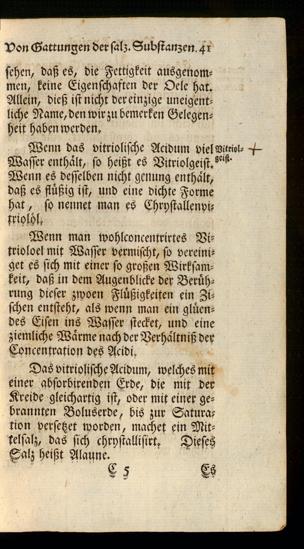 Von Gattungen der salz. Substanzen. 41
sehen, daß es, die Fettigkeit ausgenom-
men, keine Eigenschaften der Oele hat.
Allein, dieß ist nicht der einzige uneigent-
liche Name, den wir zu bemerken Gelegen-
heit haben werden.
Wenn das vitriolische Acidum viel
Vitriol-
geist.
Wasser enthält, so heißt es Vitriolgeist.
Wenn es desselben nicht genung enthält,
daß es flüßig ist, und eine dichte Forme
hat, so nennet man es Chrystallenvi-
triolöl.
Wenn man wohlconcentrirtes Vi-
trioloel mit Wasser vermischt, so vereini-
get es sich mit einer so großen Wirksam-
keit, daß in dem Augenblicke der Berüh-
rung dieser zwoen Flüßigkeiten ein Zi-
schen entsteht, als wenn man ein glüen-
des Eisen ins Wasser stecket, und eine
ziemliche Wärme nach der Verhältniß der
Concentration des Acidi.
Das vitriolische Acidum, welches mit
einer absorbirenden Erde, die mit der
Kreide gleichartig ist, oder mit einer ge-
brannten Boluserde, bis zur Satura-
tion versetzet worden, machet ein Mit-
telsalz, das sich chrystallisirt. Dieses
Salz heißt Alaune.
C 5 Es